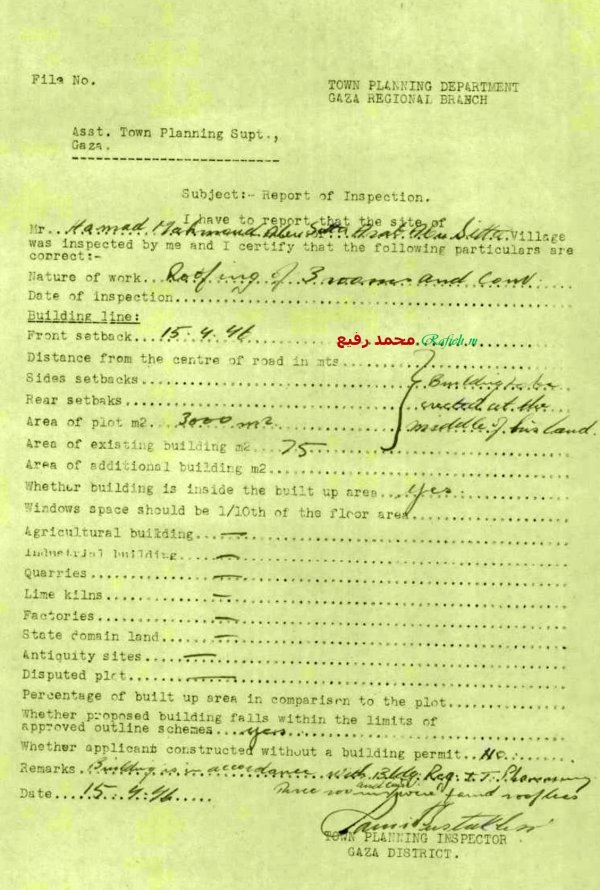 File No.
TOWN PLANNING DEPARTMENT
GAZA REGIONAL BRANCH
Asst. Town Planning Supt.,
Gaza.
Subject:- Report of Inspection.
I have to report that the site of
Mr. Hamad Mahmoud Abu Sitta Arab Abu Sitta Village
was inspected by me and I certify that the following particulars are
correct:-
Nature of work... Roofing of 3 rooms and
Date of inspection
Building line:
Front setback... 15.4.46 محمد رفيع Rafieh.
Distance from the centre of road in mts...
Sides setbacks... Building to be
Rear setbaks... erected at the
Area of plot m2.. 3000 m2 middle of his land.
Area of existing building m2.. 75
Area of additional building m2
Whether building is inside the built up area... yes
Windows space should be 1/10th of the floor area
Agricultural building... —
Industrial building... —
Quarries... —
Lime kilns... —
Factories... —
State domain land... —
Antiquity sites... —
Disputed plot... —
Percentage of built up area in comparison to the plot
Whether proposed building falls within the limits of
approved outline schemes... yes
Whether applicant constructed without a building permit.. No.
Remarks. Building is in accordance with Bldg. Reg.
Date... 15.4.46 Three rooms were found roofless
TOWN PLANNING INSPECTOR
GAZA DISTRICT.